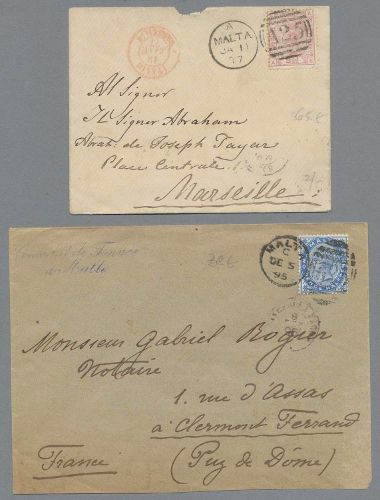 A
MALTA
JA 11
77
A25
Al Signor
Il Signor Abraham
de Joseph Tayar
Place Centrale
Marseille
Consulat de France
à Malte
MALTA
C
DE 5
95
Monsieur Gabriel Rogier
Notaire
1, rue d'Assas
à Clermont Ferrand
France
(Puy de Dôme)